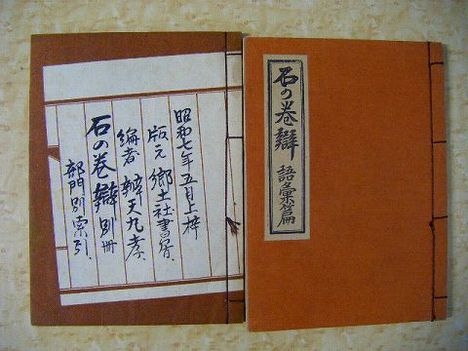 石の巻辯
語彙篇
昭和七年五月上梓
版元 郷土社書房
編者 辨天丸孝
石の巻辯 別冊
部門別索引